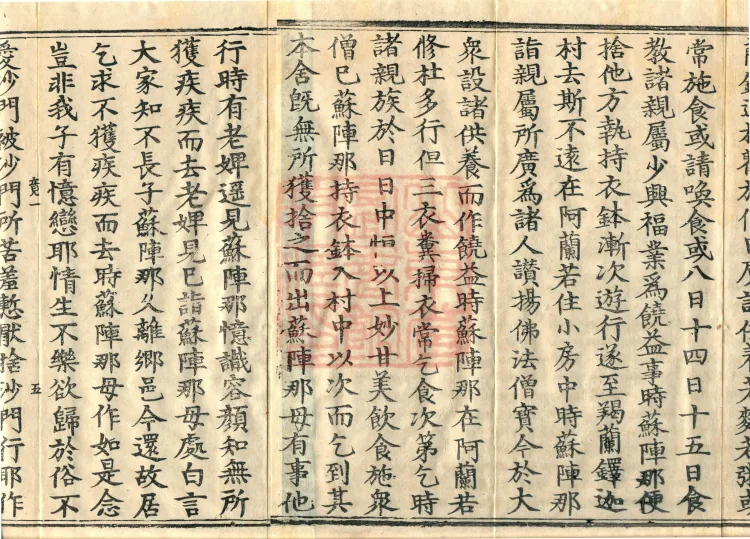 常施食或請喚食或八日十四日十五日食
教諸親屬少興福業為饒益事時蘇陣那便
捨他方執持衣鉢漸次遊行遂至羯蘭鐸迦
村去斯不遠在阿蘭若住小房中時蘇陣那
詣親屬所廣為諸人讚揚佛法僧寶今於大
衆設諸供養而作饒益時蘇陣那在阿蘭若
修杜多行但三衣糞掃衣常乞食次第乞時
諸親族於日日中恒以上妙甘美飲食施衆
僧已蘇陣那持衣鉢入村中以次而乞到其
本舍既無所獲捨之而出蘇陣那母有事他
行時有老婢遥見蘇陣那憶識容顏知無所
獲疾疾而去老婢見已詣蘇陣那母處白言
大家知不長子蘇陣那久離鄉邑今還故居
乞求不獲疾疾而去時蘇陣那母作如是念
豈非我子有憶戀耶情生不樂欲歸於俗不
竟一 五
愛沙門被沙門所苦羞慙厭捨沙門行耶作